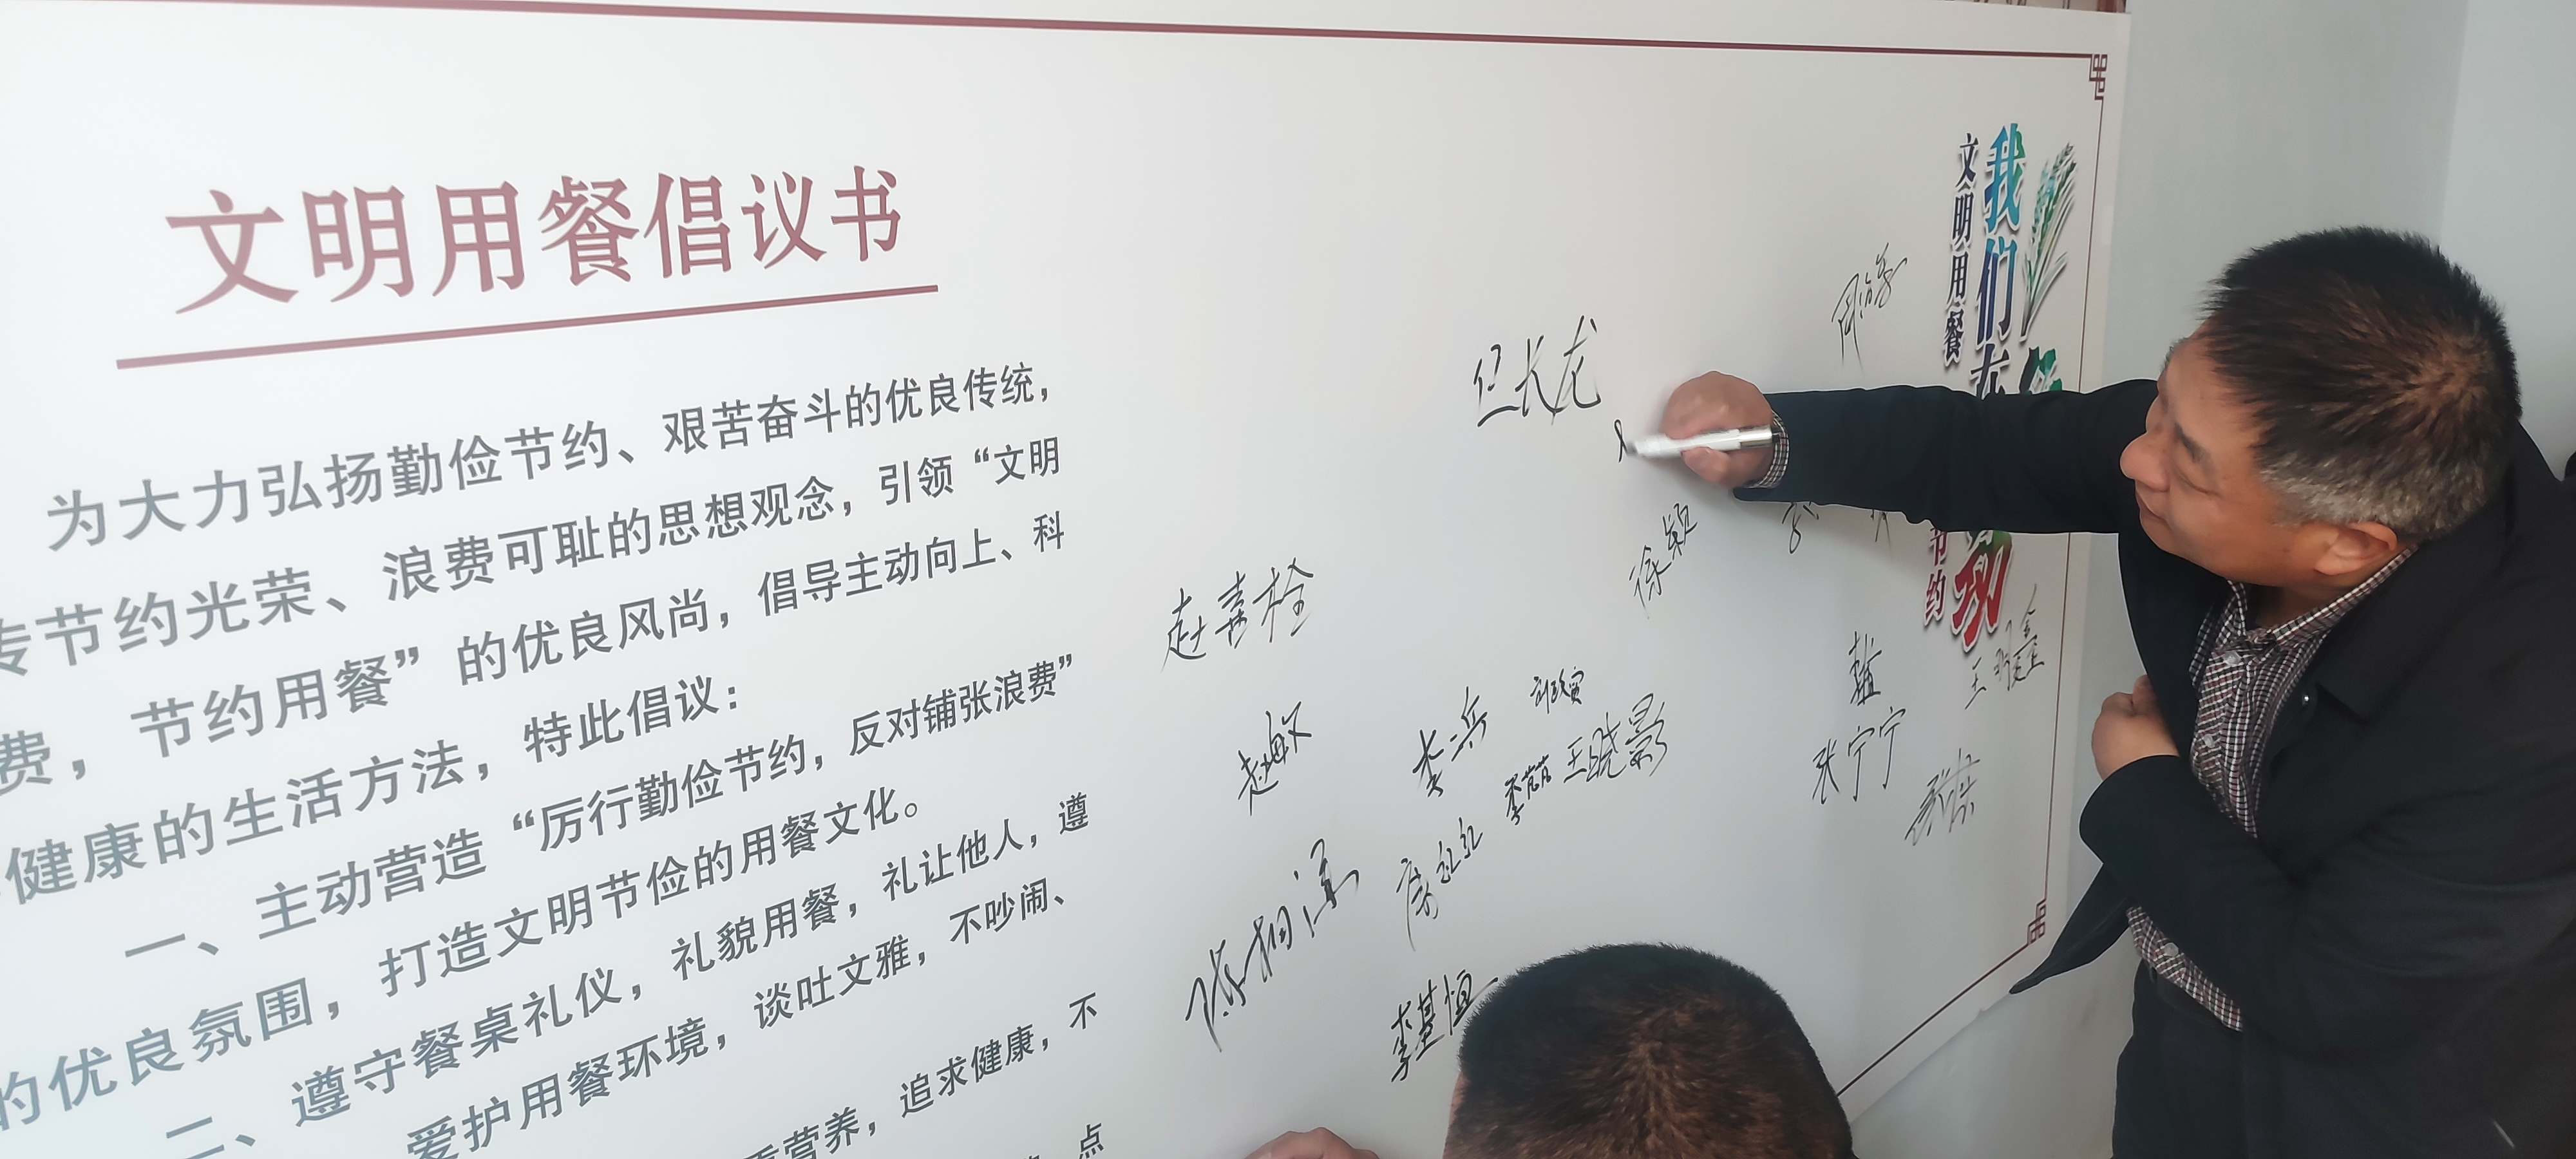 文明用餐倡议书
为大力弘扬勤俭节约、艰苦奋斗的优良传统，
传节约光荣、浪费可耻的思想观念，引领“文明
费，节约用餐”的优良风尚，倡导主动向上、科
健康的生活方法，特此倡议：
一、主动营造“厉行勤俭节约，反对铺张浪费”
的优良氛围，打造文明节俭的用餐文化。
二、遵守餐桌礼仪，礼貌用餐，礼让他人，遵
爱护用餐环境，谈吐文雅，不吵闹、
营养，追求健康，不
点
我们在
文明用餐
节约
但长龙
徐颖
赵嘉栓
赵敏
李兵
王晓影
张宁宁
李基恒